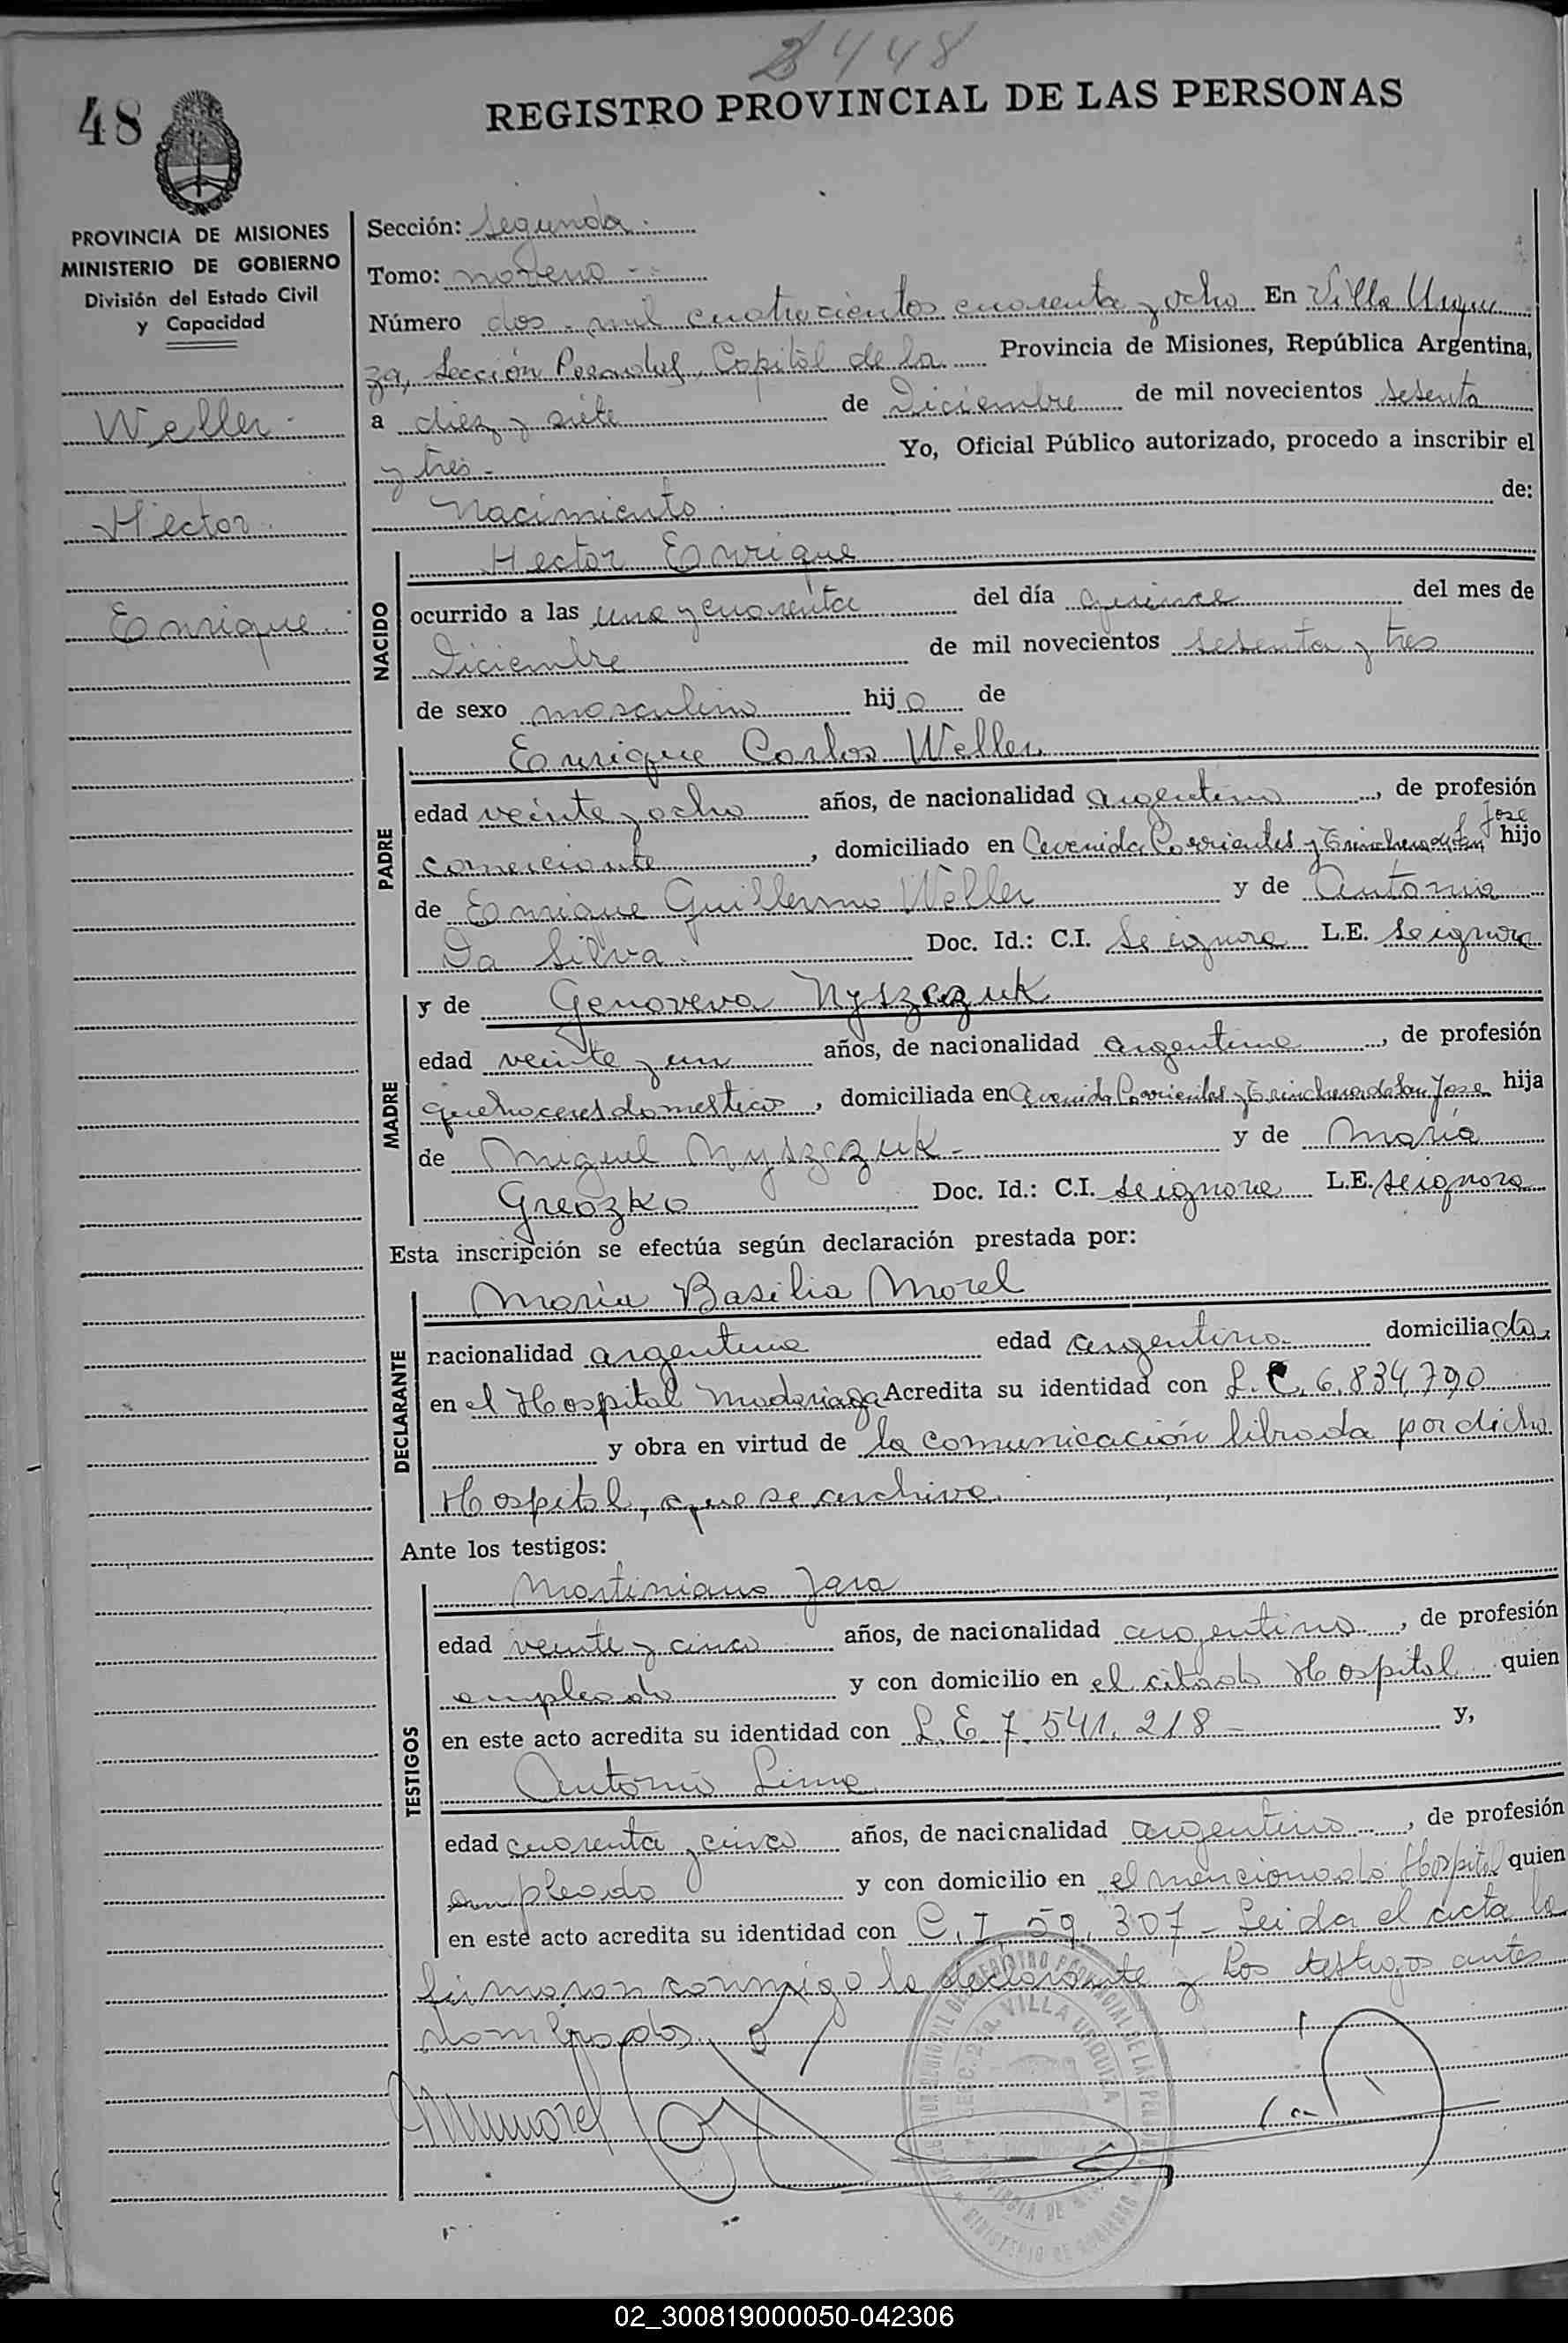 2448
48
REGISTRO PROVINCIAL DE LAS PERSONAS
PROVINCIA DE MISIONES
MINISTERIO DE GOBIERNO
División del Estado Civil
y Capacidad
Weller
Hector
Enrique
Sección: Segunda
Tomo: noveno
Número dos mil cuatrocientos cuarenta y ocho En Villa Urqui
za, Sección Posadas, Capital de la Provincia de Misiones, República Argentina,
a diez y siete de Diciembre de mil novecientos sesenta
y tres Yo, Oficial Público autorizado, procedo a inscribir el
Nacimiento de:
NACIDO
Hector Enrique
ocurrido a las una y cuarenta del día quince del mes de
Diciembre de mil novecientos sesenta y tres
de sexo masculino hijo de
PADRE
Enrique Carlos Weller
edad veinte y ocho años, de nacionalidad argentino, de profesión
comerciante, domiciliado en Avenida Corrientes y Trinchera de San José hijo
de Enrique Guillermo Weller y de Antonia
Da Silva Doc. Id.: C.I. Se ignora L.E. Se ignora
MADRE
y de Genoveva Nyszczuk
edad veinte y un años, de nacionalidad argentina, de profesión
quehaceres domesticos, domiciliada en Avenida Corrientes y Trinchera de San Jose hija
de Miguel Nyszczuk y de María
Greozko Doc. Id.: C.I. Se ignora L.E. Se ignora
Esta inscripción se efectúa según declaración prestada por:
DECLARANTE
María Basilia Morel
nacionalidad argentina edad argentina domiciliada
en el Hospital Madariaga Acredita su identidad con L.C. 6.834.790
y obra en virtud de la comunicación librada por dicho
Hospital, que se archiva.
Ante los testigos:
TESTIGOS
Martiniano Jara
edad veinte y cinco años, de nacionalidad argentino, de profesión
empleado y con domicilio en el citado Hospital quien
en este acto acredita su identidad con L.E. 7.541.218 y,
Antonio Lima
edad cuarenta y cinco años, de nacionalidad argentino, de profesión
empleado y con domicilio en el mencionado Hospital quien
en este acto acredita su identidad con C.I. 59.307 - Leida el acta la
firmaron conmigo la declarante y los testigos antes
nombrados
VILLA URQUIZA
02_300819000050-042306